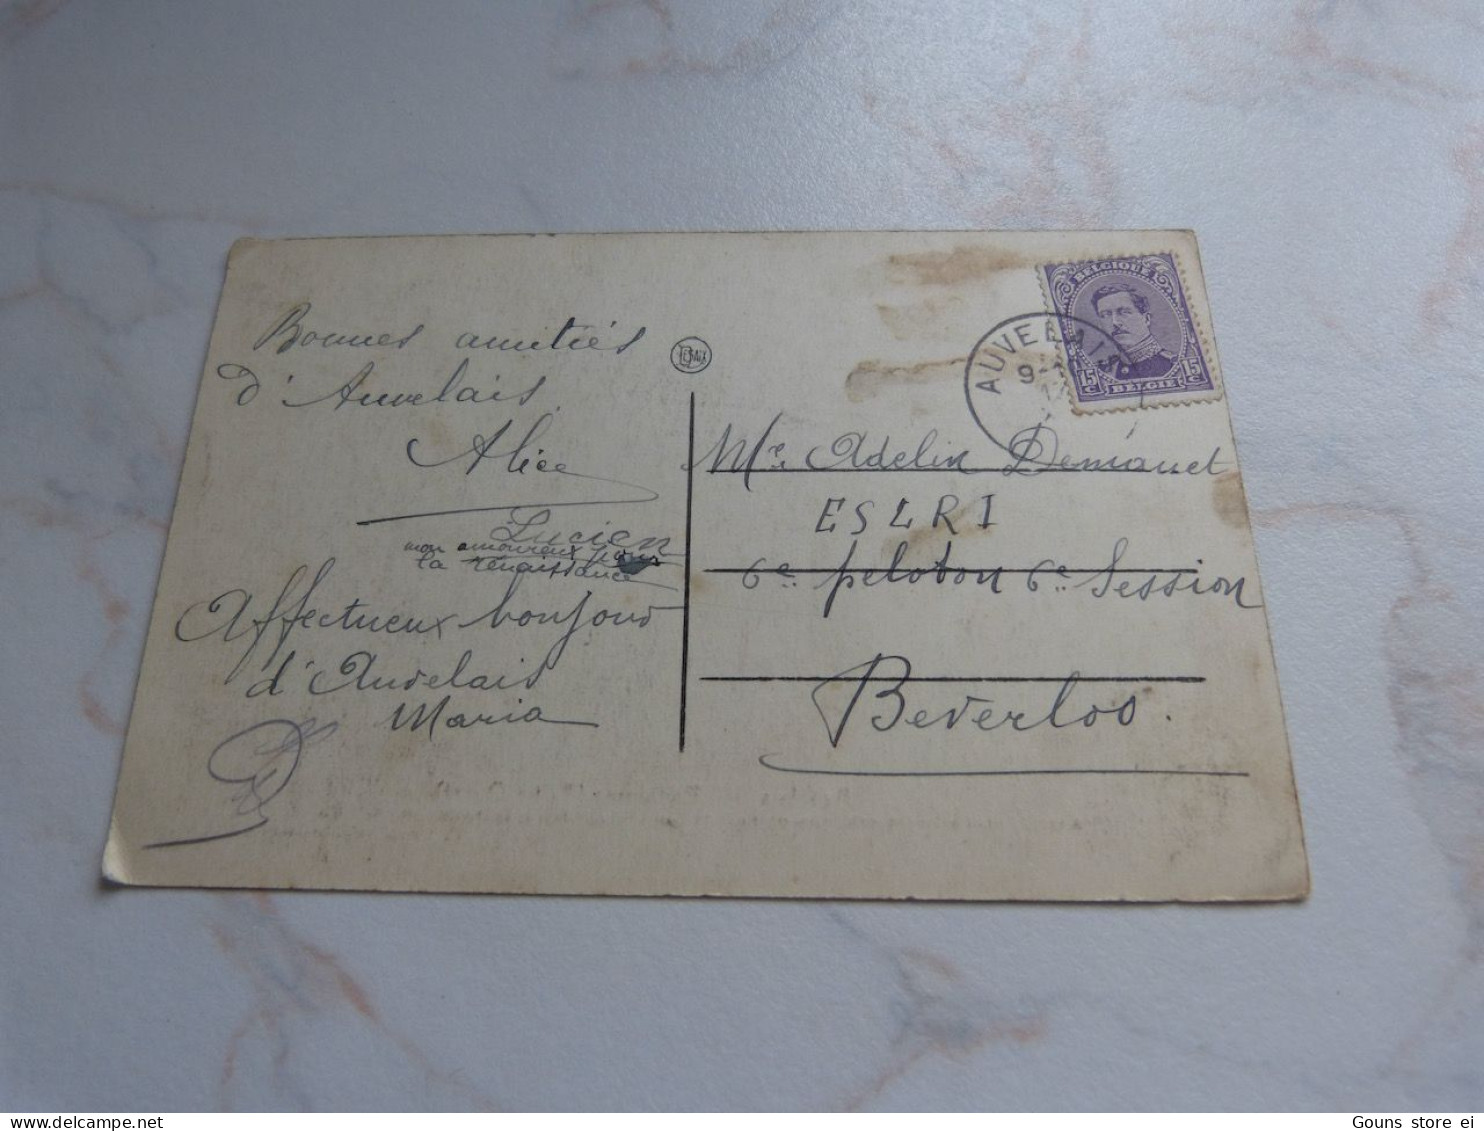 Bonnes amitiés
d'Auvelais
Alice
Lucien
mon amoureux pour
la renaissance
Affectueux bonjour
d'Auvelais
Maria
DESAIX
BELGIQUE
15 C 15 C
BELGIE
AUVELAIS
9-
Mr. Adelin Demanet
ESLRI
6e peloton 6e Session
Beverloo.
Gouns store ei